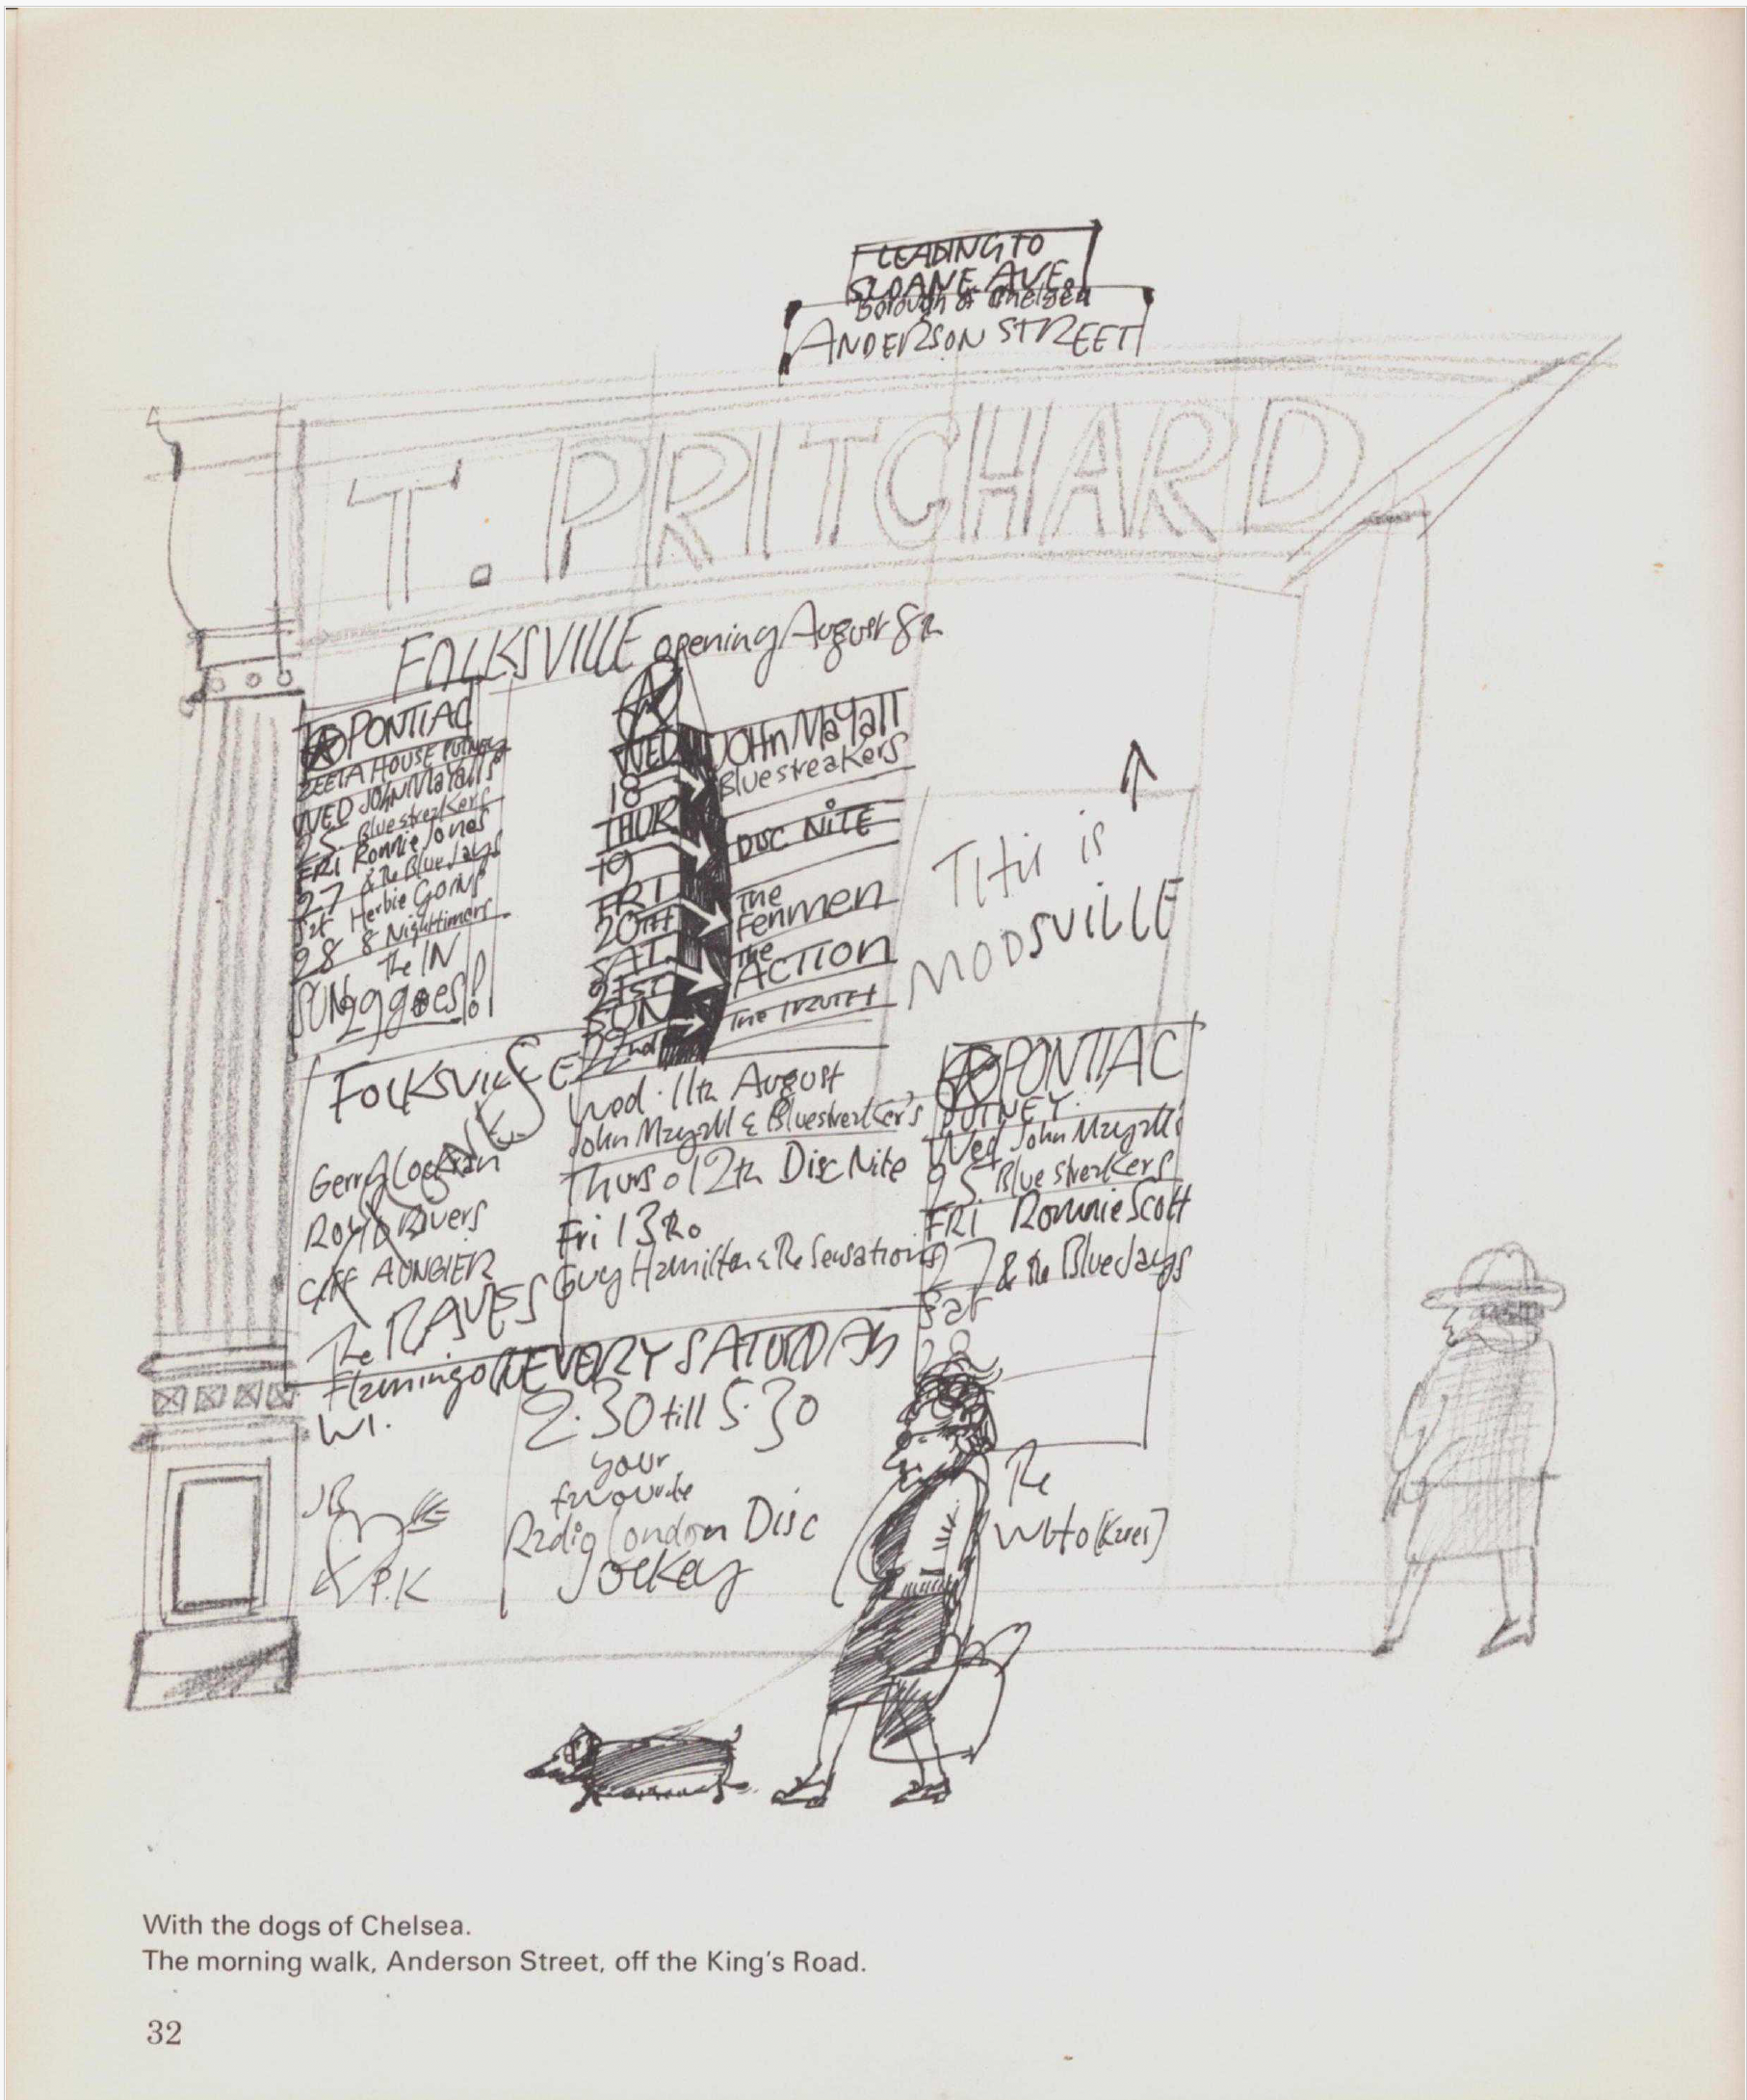 LEADING TO
SLOANE AVE.
Borough of Chelsea
ANDERSON STREET
T. PRITCHARD
FOLKSVILLE opening August 8th
PONTIAC
ZEETA HOUSE PUTNEY
WED JOHN MaYalls
25. Bluestreakers
FRI Ronnie Jones
27 & the Blue Jays
Sat Herbie Goins
28 & Nightimers
The IN
SUN 29 goes!!
WED
18
JOHn MaYall
Bluestreakers
THUR
19
DISC NITE
FRI
20TH
The
Fenmen
SAT.
21ST
The
ACTION
SUN
22nd
The TRUTH
THis is
MODSVILLE
FOLKSVILLE
Gerry Lockran
CLIFF AUNGIER
The RAVES
Wed. 11th August
John Mayall & Bluestreaker's
Thurs 12th Disc Nite
Fri 13th
Guy Hamilton & the Sensations
PONTIAC
PUTNEY.
Wed John Mayalls
25. Blue streakers
FRI Ronnie Scott
27 & the Blue Jays
Sat
28
Flamingo
W1.
EVERY SATURDAY
2.30 till 5.30
your
favourite
Radio London Disc
Jockey
JB
P.K
The
WHO
With the dogs of Chelsea.
The morning walk, Anderson Street, off the King's Road.
32